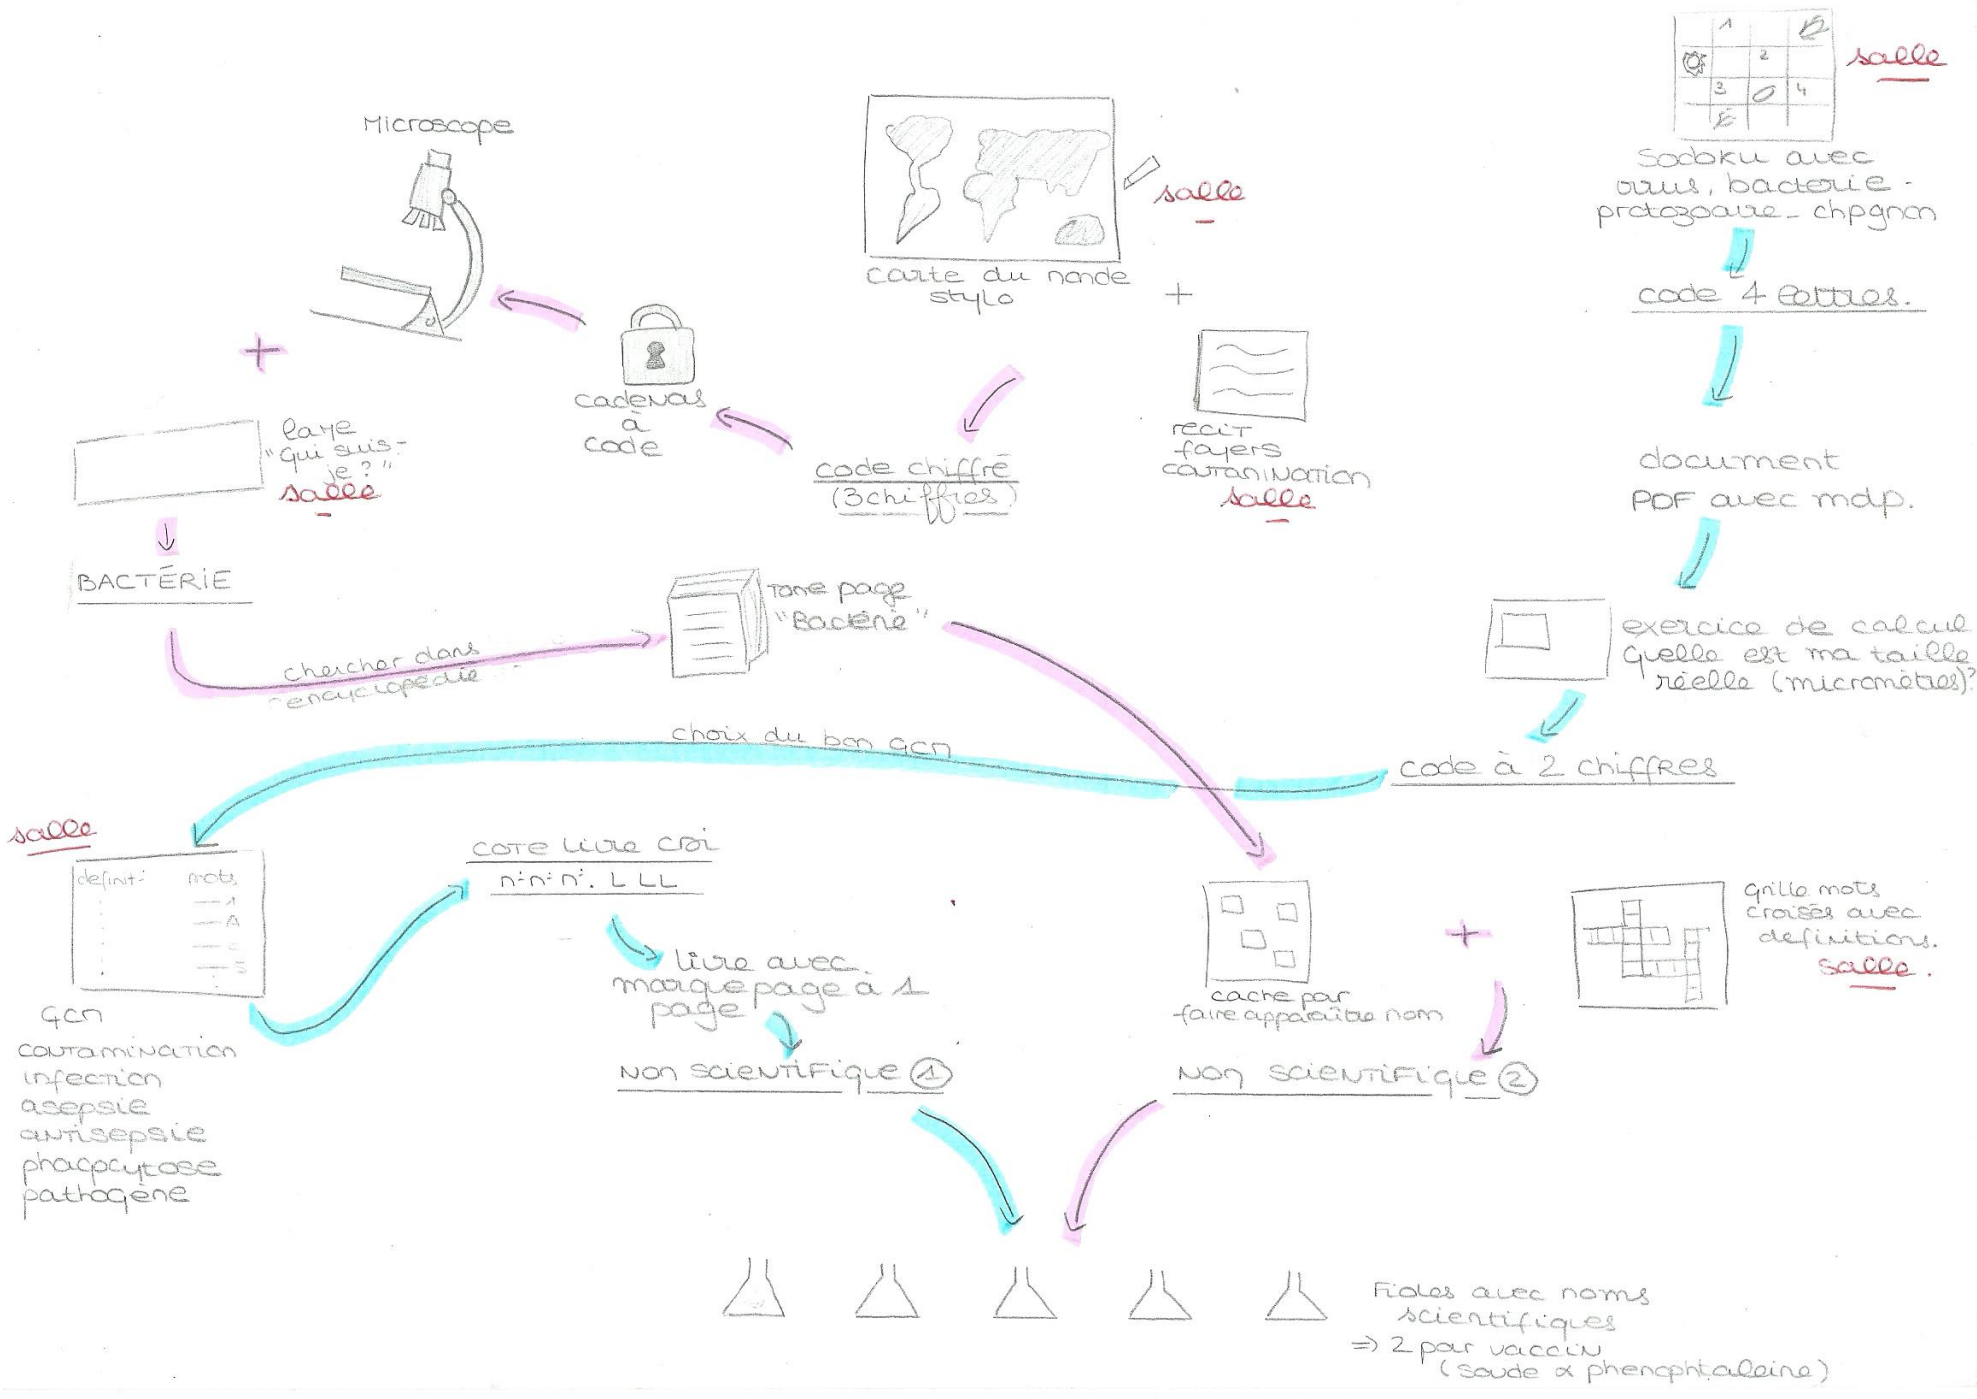 Microscope
"
lame
"Qui suis-
je ?"
salle
BACTÉRIE
chercher dans
encyclopédie
cadenas
à
code
carte du monde
stylo
salle
+
recit
foyers
contamination
salle
code chiffré
(3 chiffres)
Tome page
"Bactérie"
1
2
3
4
salle
Sodoku avec
virus, bacterie -
protozoaire - chpgnon
code 4 lettres.
document
PDF avec mdp.
exercice de calcul
Quelle est ma taille
réelle (micromètres)?
code à 2 chiffres
choix du bon QCM
salle
definit°
mots
1
A
QCM
contamination
infection
asepsie
antisepsie
phagocytose
pathogène
COTE Livre CDI
n° n° n°. L L L
livre avec
marque page à 1
page
NOM SCIENTIFIQUE 1
cache pour
faire apparaître nom
+
Grille mots
croisés avec
définitions.
salle.
NOM SCIENTIFIQUE 2
Fioles avec noms
scientifiques
=> 2 pour vaccin
(soude & phenophtaleine)